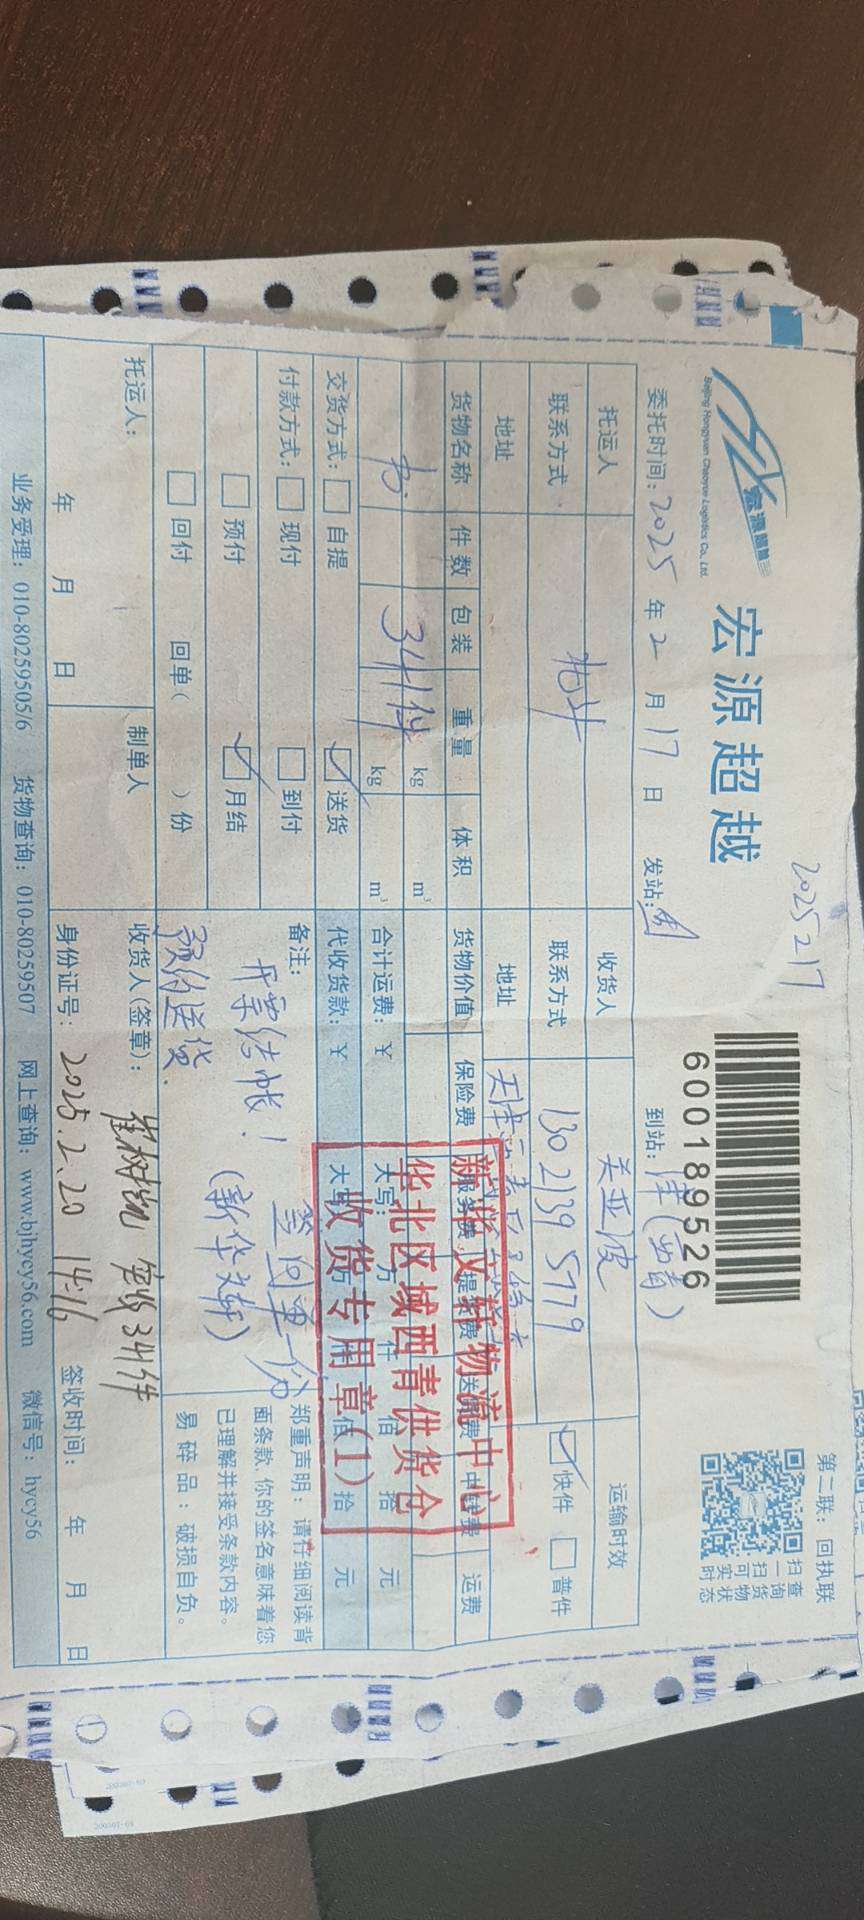 2025 2 17
第二联：回执联
宏源超越
Beijing Hongyuan Chaoyue Logistics Co., Ltd.
宏源超越
600189526
扫查
一询
扫货
可物
实状
时态
委托时间：2025 年 2 月 17 日 发站： 到站：津（西青）
托运人 收货人 关亚波 运输时效
联系方式 联系方式 13021395779 快件 普件
地址 地址 天津
货物名称 件数 包装 重量 体积 货物价值 保险费 服务费 提货费 送货费 中转费 运费
kg m³
书 341件 kg m³ 合计运费：￥ 大写： 万 仟 佰 拾 元
交货方式： 自提 送货 代收货款：￥ 大写 万 仟 佰 拾 元
付款方式： 现付 到付 备注： 签回单一份
预付 月结 开票结帐！
回付 回单（ ）份 预付送货. （新华文轩）
郑重声明：请仔细阅读背
面条款，你的签名意味着您
已理解并接受条款内容。
易碎品：破损自负。
新华文轩物流中心
华北区域西青供货仓
收货专用章（1）
托运人： 制单人 收货人（签章）： 崔树凯 实收341件
年 月 日 身份证号： 2025.2.20 14:16 签收时间： 年 月 日
业务受理：010-80259505/6 货物查询：010-80259507 网上查询：www.bjhycy56.com 微信号：hycy56